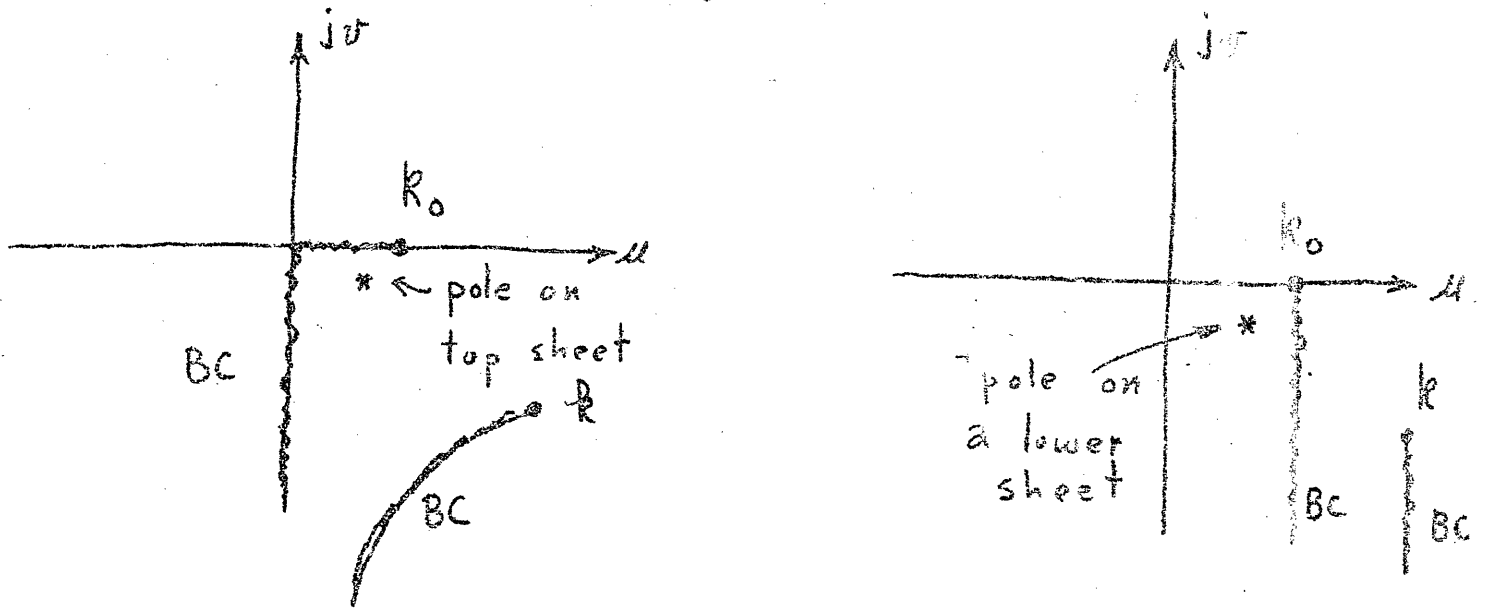 jv
k₀
μ
* ← pole on
top sheet
BC
k
BC
jv
k₀
μ
*
pole on
a lower
sheet
k
BC
BC